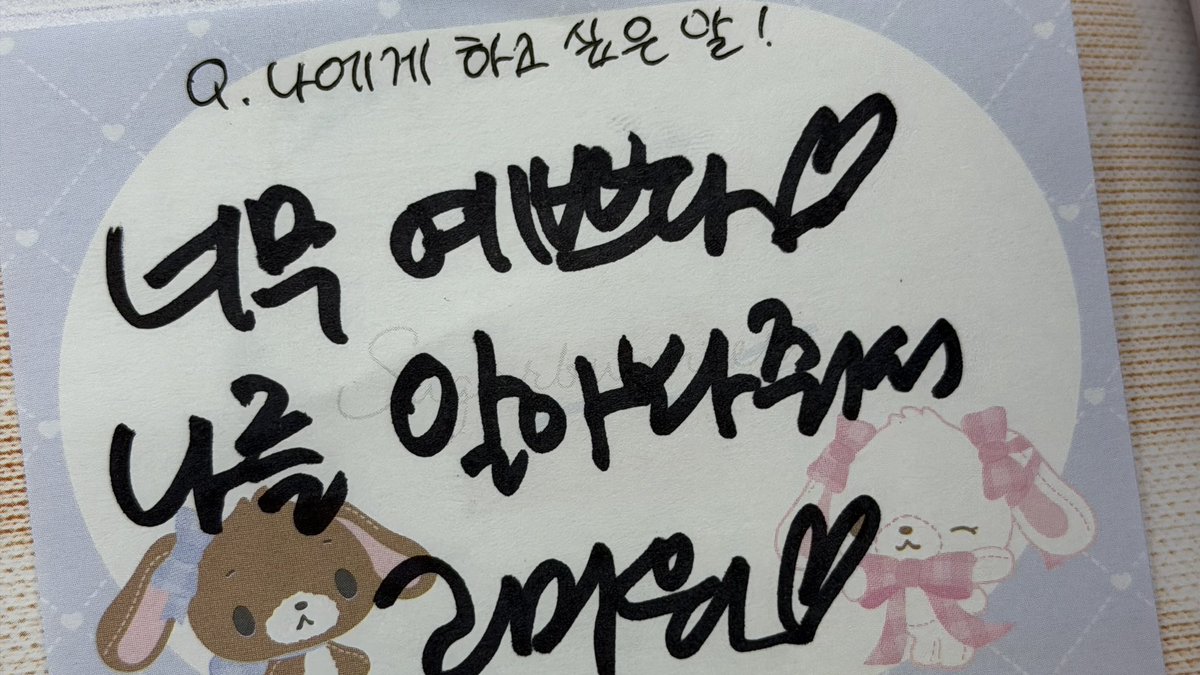 Q. 나에게 하고 싶은 말!
너무 예쁘다♡
나를 알아봐줘서
고마워♡